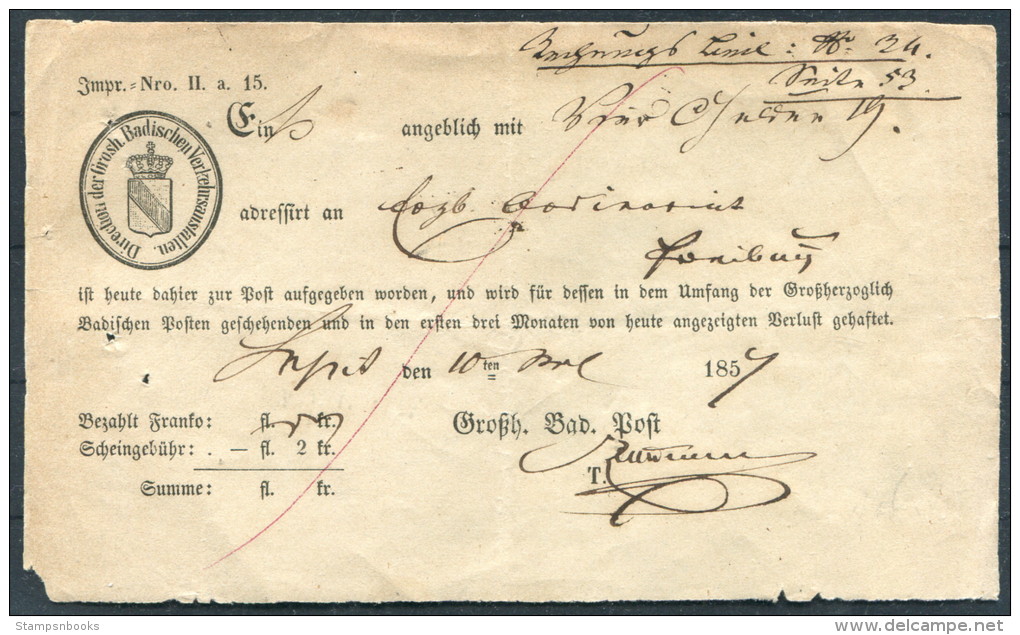 Rechnungs Beil: No. 24.
Seite 53
Impr.=Nro. II. a. 15.
Direction der Grosh. Badischen Verkehrsanstalten.
Ein angeblich mit Vier Gulden
adressirt an Erzb. Ordinariat
Freiburg
ist heute dahier zur Post aufgegeben worden, und wird für dessen in dem Umfang der Großherzoglich
Badischen Posten geschehenden und in den ersten drei Monaten von heute angezeigten Verlust gehaftet.
den 10ten 1857
Bezahlt Franko: fl. kr.
Scheingebühr: . — fl. 2 kr.
Summe: fl. kr.
Großh. Bad. Post
T.
Stampsnbooks
delcampe.net